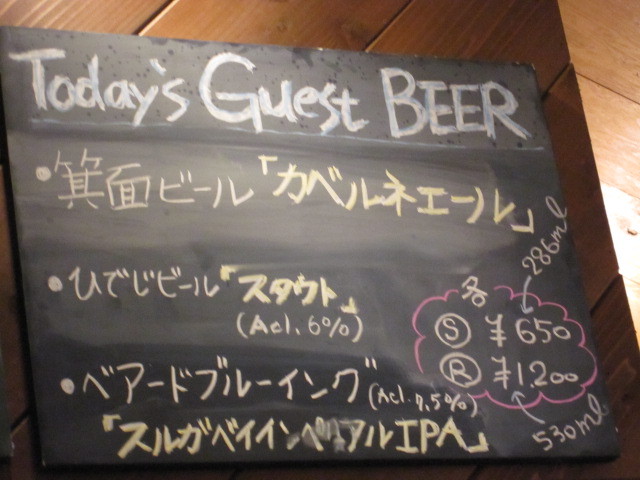 Today's Guest BEER
・箕面ビール「カベルネエール」
・ひでじビール「スタウト」
(Acl. 6%)
・ベアードブルーイング (Acl. 7.5%)
「スルガベイインペリアルIPA」
286ml
各
Ⓢ ¥650
Ⓡ ¥1,200
530ml